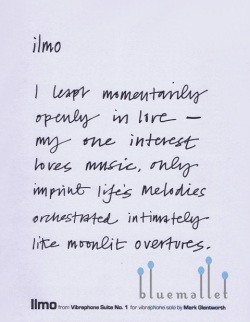 ilmo
I leapt momentarily
openly in love —
my one interest
loves music, only
imprint life's melodies
orchestrated intimately
like moonlit overtures.
bluemallet
Ilmo from Vibraphone Suite No. 1 for vibraphone solo by Mark Glentworth